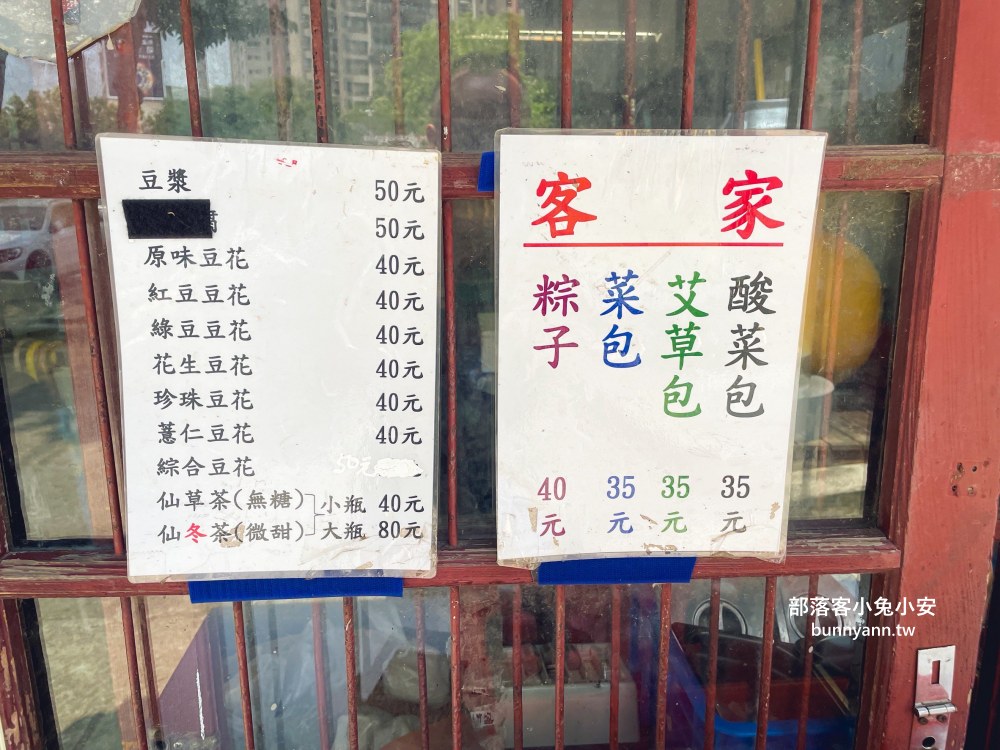 豆漿 50元
腐 50元
原味豆花 40元
紅豆豆花 40元
綠豆豆花 40元
花生豆花 40元
珍珠豆花 40元
薏仁豆花 40元
綜合豆花 50元
仙草茶(無糖) 小瓶 40元
仙冬茶(微甜) 大瓶 80元
客家
酸菜包 35元
艾草包 35元
菜包 35元
粽子 40元
部落客小兔小安
bunnyann.tw